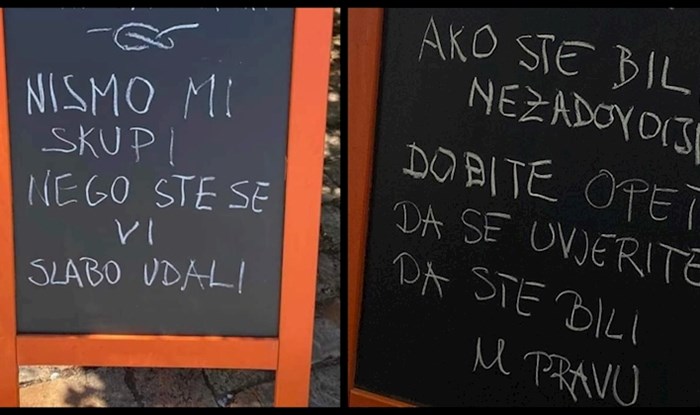 NISMO MI
SKUPI
NEGO STE SE
VI
SLABO UDALI
AKO STE BIL
NEZADOVOLJ
DOBITE OPET
DA SE UVJERITE
DA STE BILI
U PRAVU